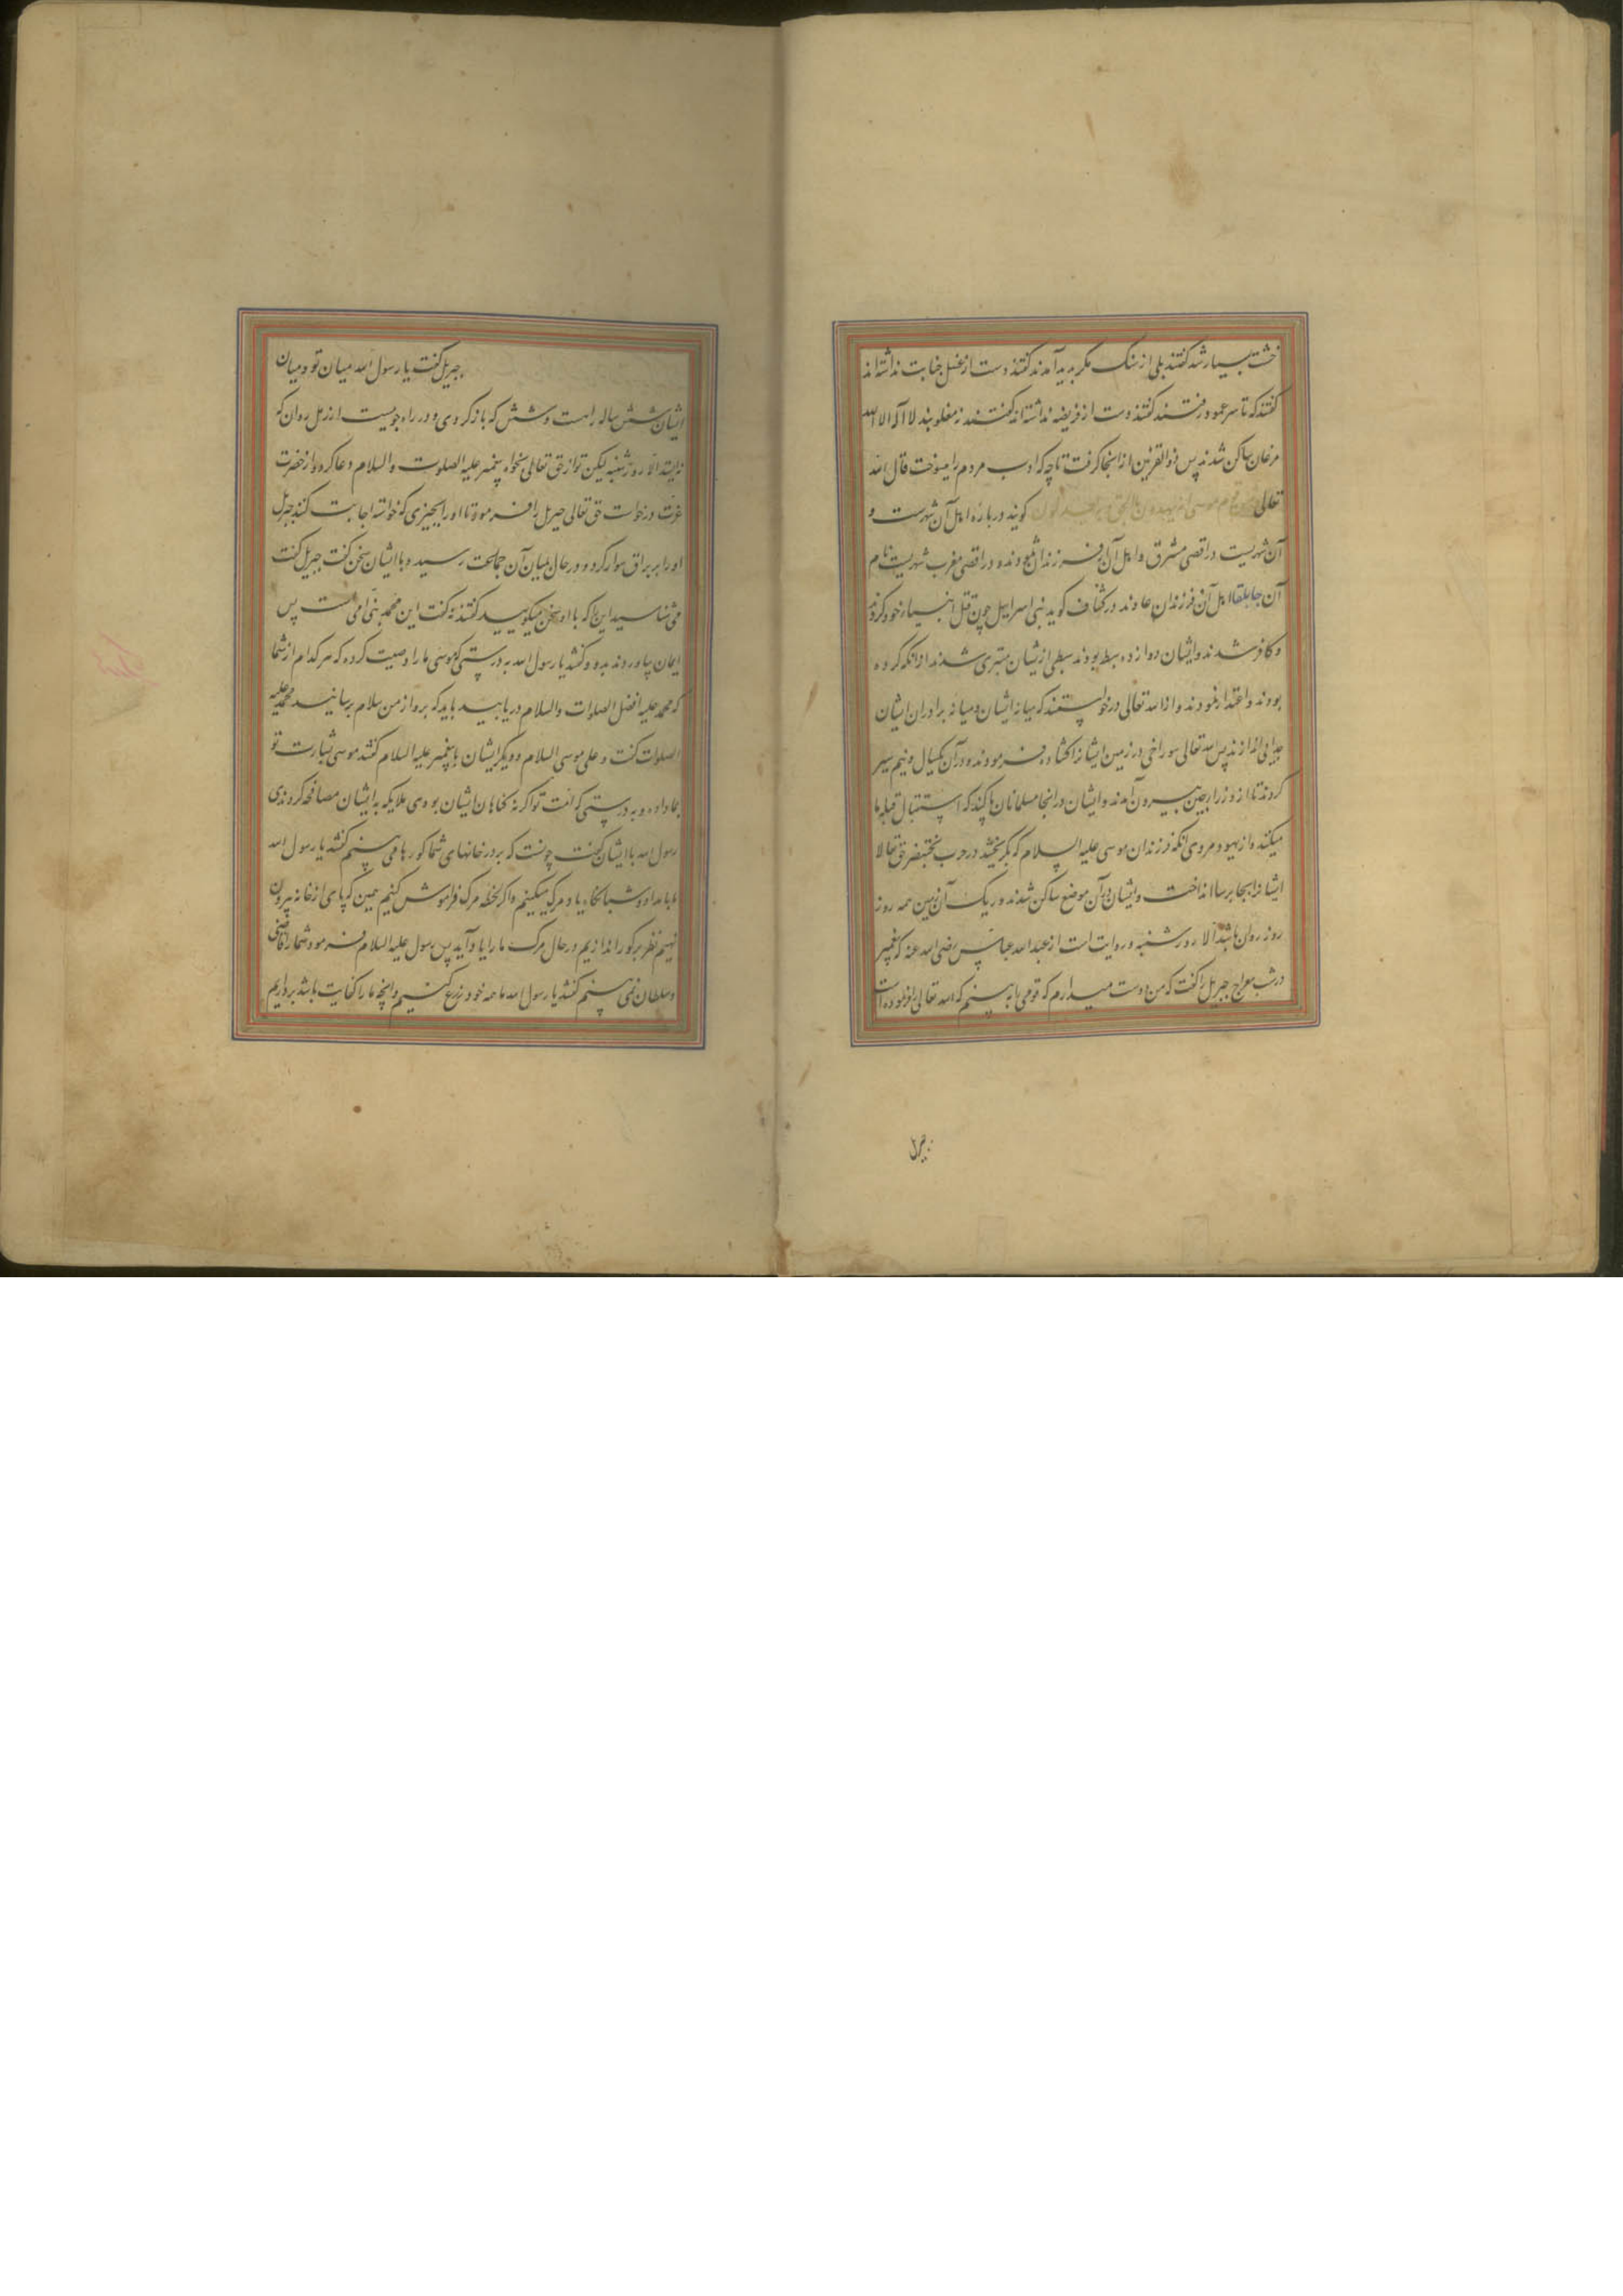 خشت بسیار شد گفتند بلی از سنگ مکر پدید آمدند گفتند دست از غسل جنابت نداشته‌اند
گفتند که تا سر عمود رفتند گفتند دست از فریضه نداشته‌اند گفتند نه مغلوبند لا اله الا الله
مرغان ساکن شدند پس ذوالقرنین از انجا کرفت تا چه که ادب مردم را میسوخت قال الله
تعالی قوم موسی امة یهدون بالحق و به یعدلون کویند درباره اهل آن شهرست و
آن شهریست در اقصی مشرق و اهل آن از فرزندان ثمودند و در اقصی مغرب شهریست نام
آن جابلقا اهل آن فرزندان عادند در کشاف کوید بنی اسراییل چون قتل انبیاء خود کردند
و کافر شدند و ایشان دوازده سبط بودند سبطی از یشان متبری شدند از انکه کرده
بودند و اعتذار نمودند و از الله تعالی درخواستند که میانه ایشان و میانه برادران ایشان
جدایی اندازند پس الله تعالی سوراخی در زمین ایشانرا کشاده فرمودند و در آن یکسال و نیم سیر
کردند تا از وراء چین بیرون آمدند و ایشان در انجا مسلمانان پاکند که استقبال قبله ما
میکنند و از یهود مروی انکه فرزندان موسی علیه السلام که بگریختند در حرب بختنصر حق تعالا
ایشانرا بجابرسا انداخت و ایشان در آن موضع ساکن شدند و ریک آن زمین همه روز
روز روان باشد الا روز شنبه و روایت است از عبد الله عباس رضی الله عنه که پیغمبر
در شب معراج جبریل را کفت که من دوست میدارم که قومی را به بینم که الله تعالی فرموده است
جبریل
جبریل کفت یا رسول الله میان تو و میان
ایشان شش ساله راهست و شش که باز کردی و در راه جوییست از رمل روان که
نه ایستد الا روز شنبه لیکن تو از حق تعالی بخواه پیغمبر علیه الصلوت والسلام دعا کرد و از حضرت
عزت درخواست حق تعالی جبریل را فرمود تا او را بچیزی که خواسته اجابت کند جبریل
او را بر براق سوار کرد و در حال میان آن جماعت رسید و با ایشان سخن کفت جبریل کفت
می شناسید این را که با او سخن میکویید گفتند نه کفت این محمد نبی امی است پس
ایمان بیاوردند بدو و کفتند یا رسول الله به درستی که موسی ما را وصیت کرده که هر کدام از شما
که محمد علیه افضل الصلوات والسلام دریابید باید که برو از من سلام برسانید محمد علیه
الصلوات کفت و علی موسی السلام و دیکر ایشان با پیغمبر علیه السلام کفتند موسی بشارت تو
بما داده و به درستی که امت تو اگر نه کناهان ایشان بودی ملایکه به ایشان مصافحه کردندی
رسول الله با ایشان کفت چونست که بر در خانهای شما کورها می بینم کفتند یا رسول الله
ما بامداد و شبانکاه یاد مرک میکنیم و اکر لحظه مرک فراموش کنیم همین که پای از خانه بیرون
نهیم نظر بر کور اندازیم در حال مرک ما را یاد آید پس رسول علیه السلام فرمود شما را قاضی
و سلطان نمی بینم کفتند یا رسول الله ما همه خود زرع کنیم و انچه ما را کفایت باشد برداریم